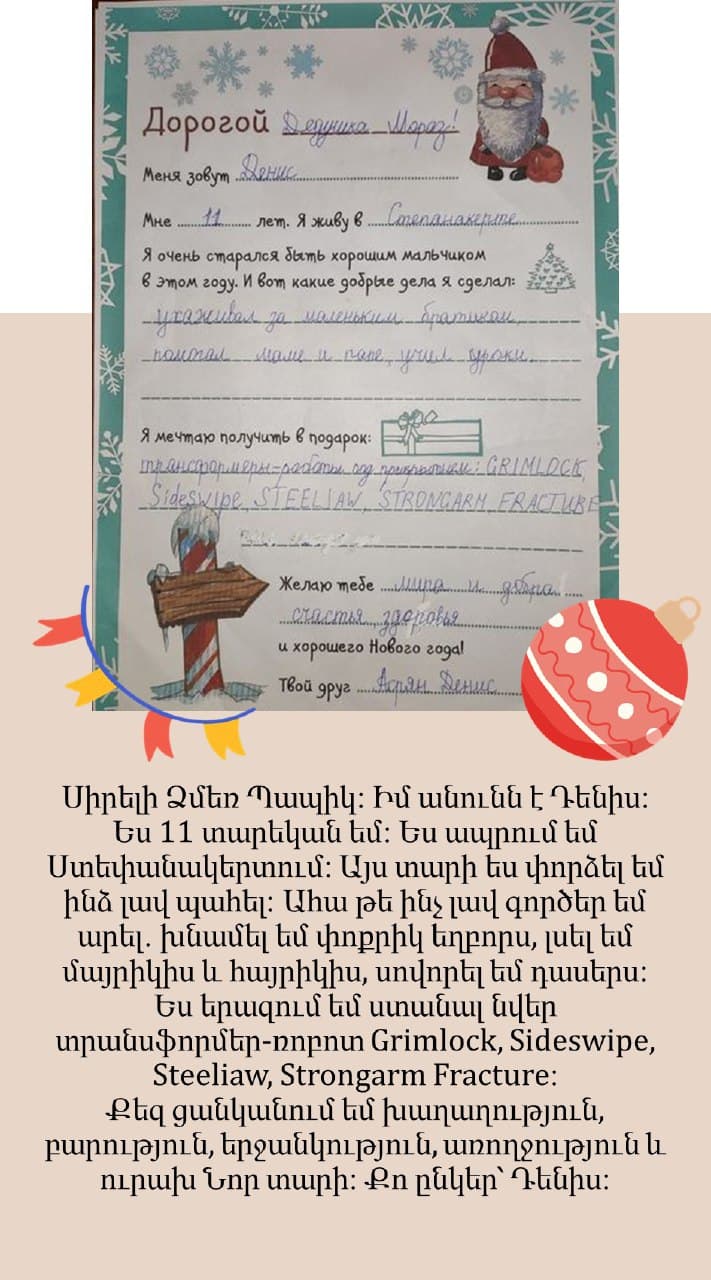 Дорогой Дедушка Мороз!
Меня зовут Денис
Мне 11 лет. Я живу в Степанакерте
Я очень старался быть хорошим мальчиком
в этом году. И вот какие добрые дела я сделал:
ухаживал за маленьким братиком,
помогал маме и папе, учил уроки.
Я мечтаю получить в подарок:
трансформеры-роботы под прикрытием: GRIMLOCK,
SideSwipe, STEELIAW, STRONGARM, FRACTURE
Желаю тебе мира и добра!
счастья, здоровья
и хорошего Нового года!
Твой друг Асрян Денис
Սիրելի Ձմեռ Պապիկ: Իմ անունն է Դենիս:
Ես 11 տարեկան եմ: Ես ապրում եմ
Ստեփանակերտում: Այս տարի ես փորձել եմ
ինձ լավ պահել: Ահա թե ինչ լավ գործեր եմ
արել. խնամել եմ փոքրիկ եղբորս, լսել եմ
մայրիկիս և հայրիկիս, սովորել եմ դասերս:
Ես երազում եմ ստանալ նվեր
տրանսֆորմեր-ռոբոտ Grimlock, Sideswipe,
Steeliaw, Strongarm Fracture:
Քեզ ցանկանում եմ խաղաղություն,
բարություն, երջանկություն, առողջություն և
ուրախ Նոր տարի: Քո ընկեր՝ Դենիս: